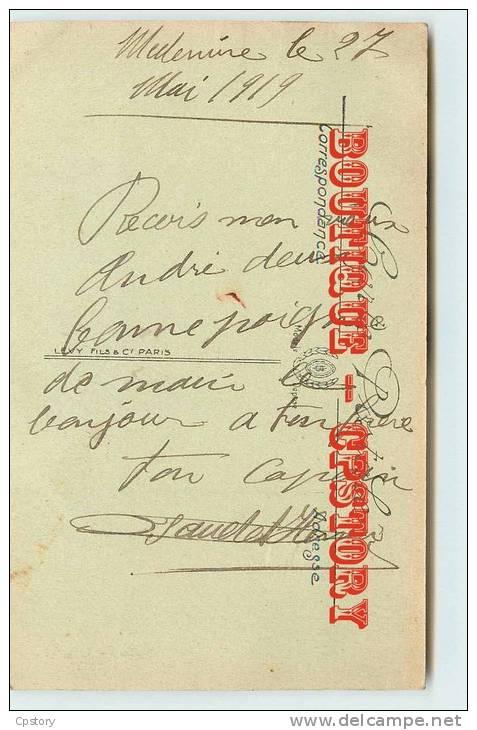 Medenine le 27
Mai 1919
Recois mon vieux
André deux
bonne poignée
de main le
bonjour a ton frère
ton copain
Correspondance
Adresse
LEVY FILS & Cie PARIS
BOUTIQUE - CPSTORY
Cpstory
www.delcampe.net